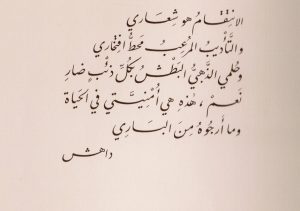 الانتقام هو شعاري
والتأديب المرعب محط افتخاري
وحلمي الذهبي البطش بكل ذئب ضار
نعم، هذه هي أمنيتي في الحياة
وما أرجوه من الباري
داهش